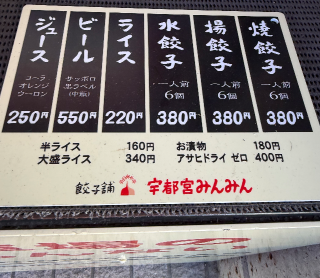 焼餃子
一人前
6個
380円
揚餃子
一人前
6個
380円
水餃子
一人前
6個
380円
ライス
220円
ビール
サッポロ
黒ラベル
(中瓶)
550円
ジュース
コーラ
オレンジ
ウーロン
250円
半ライス 160円 お漬物 180円
大盛ライス 340円 アサヒドライ ゼロ 400円
餃子舗 宇都宮みんみん